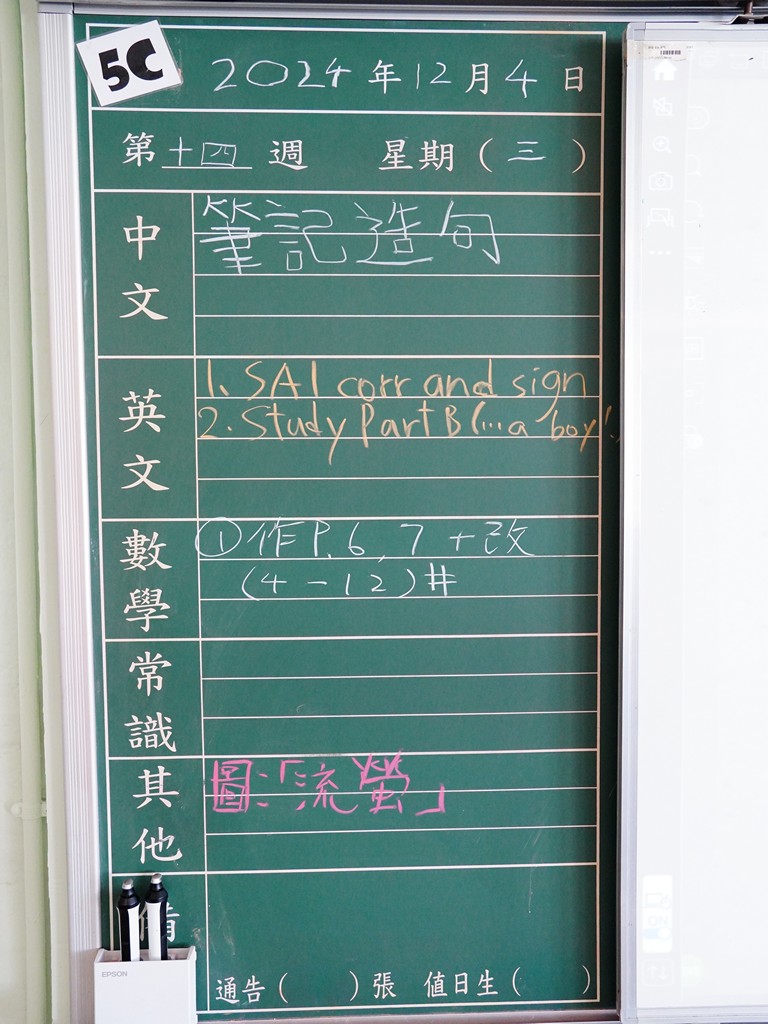 5C
2024年12月4日
第十四週 星期（三）
中文
筆記造句
英文
1. SA1 corr and sign
2. Study Part B (...a boy!.
數學
① 作P.6, 7 + 改
(4-12)#
常識
其他
圖：「流螢」
備
EPSON
通告（ ）張 值日生（ ）